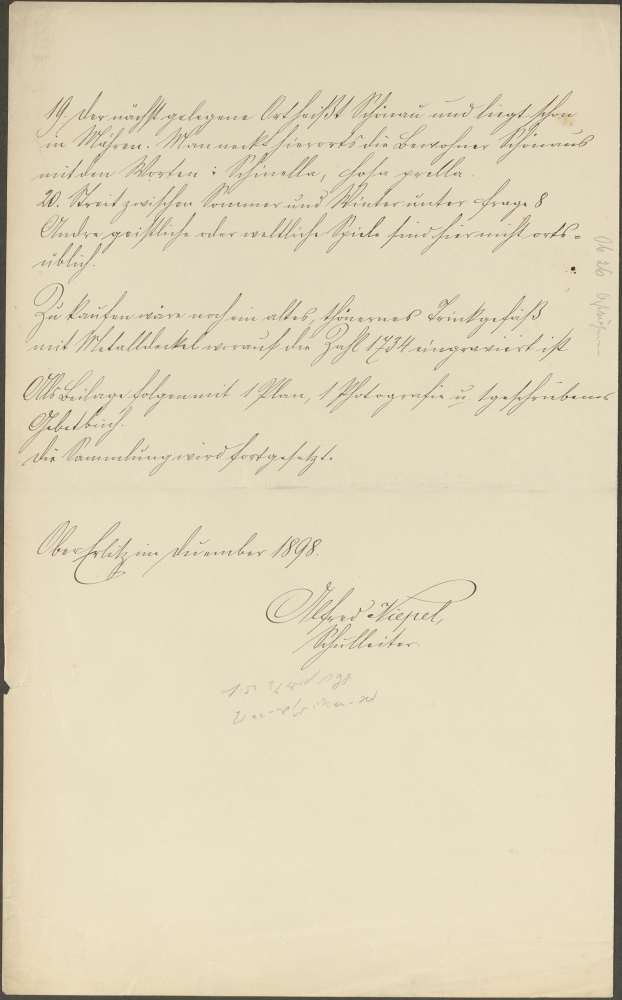 19. Der nächst gelegene Ort heißt Schönau und liegt schon
in Mähren. Man neckt hierorts die Bewohner Schönaus
mit den Worten: Schinella, hosa prella.
20. Streit zwischen Sommer und Winter unter Frage 8
Andre geistliche oder weltliche Spiele sind hier nicht orts-
üblich.
Zu kaufen wäre noch ein altes, thönernes Trinkgefäß
mit Metalldeckel worauf die Zahl 1734 eingraviert ist
Als Beilage folgen mit 1 Plan, 1 Photografie u 1 geschriebenes
Gebetbuch.
Die Sammlung wird fortgesetzt.
Ober Erlitz im Dezember 1898.
Alfred Niepel,
Schulleiter.